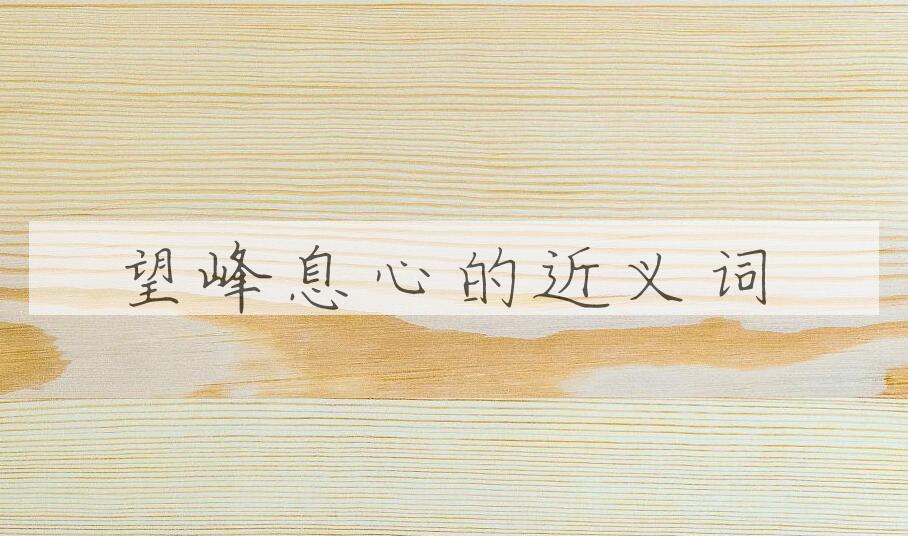 望峰息心的近义词